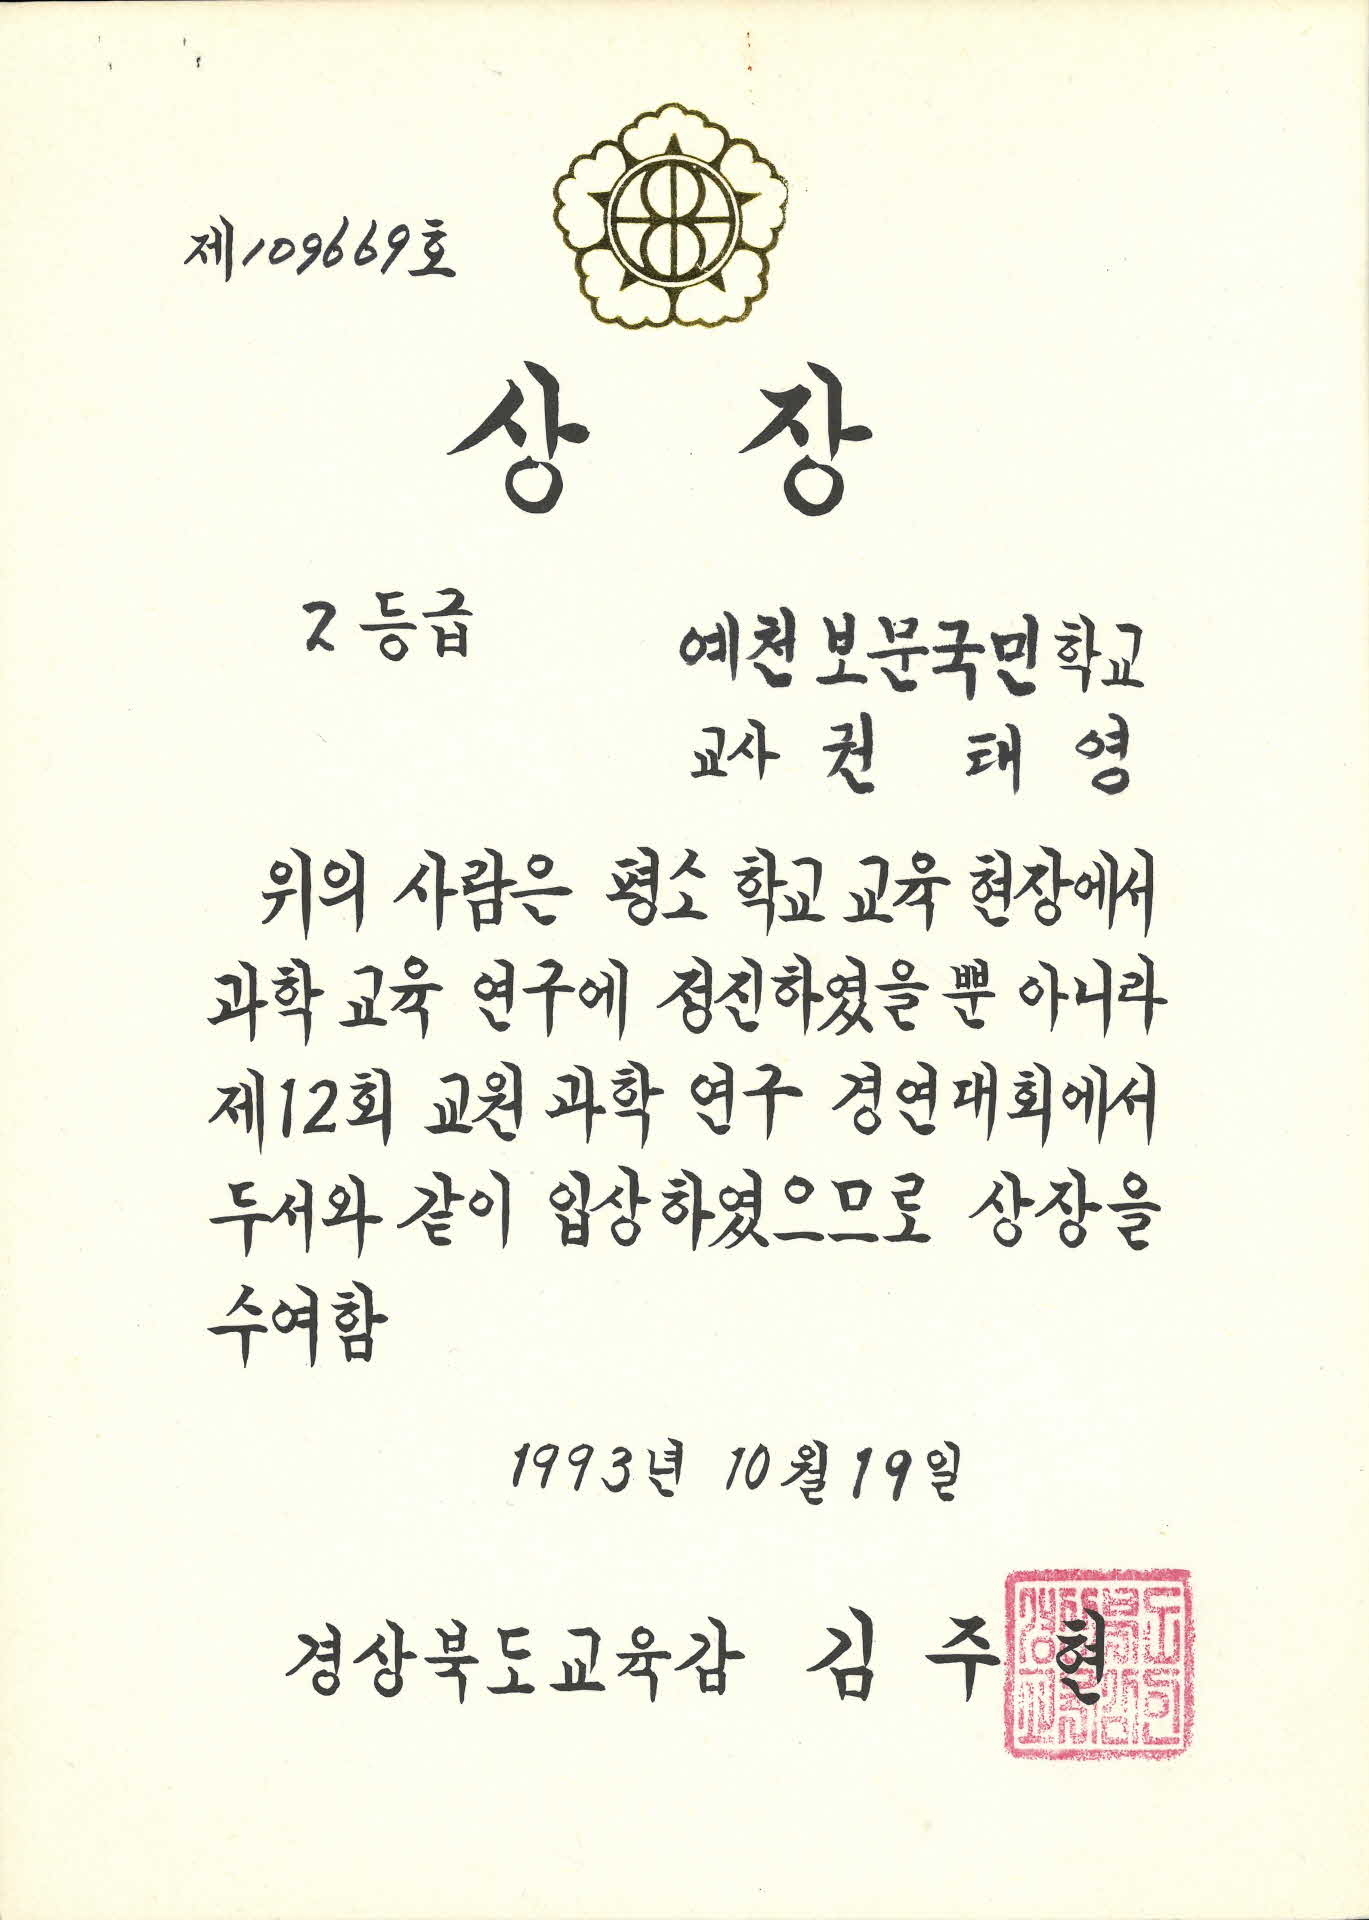 제109669호
상 장
2등급
예천보문국민학교
교사 권 태 영
위의 사람은 평소 학교 교육 현장에서
과학 교육 연구에 정진하였을뿐 아니라
제12회 교원 과학 연구 경연대회에서
두서와 같이 입상하였으므로 상장을
수여함
1993년 10월 19일
경상북도교육감 김 주 현
경상북도교육감의인